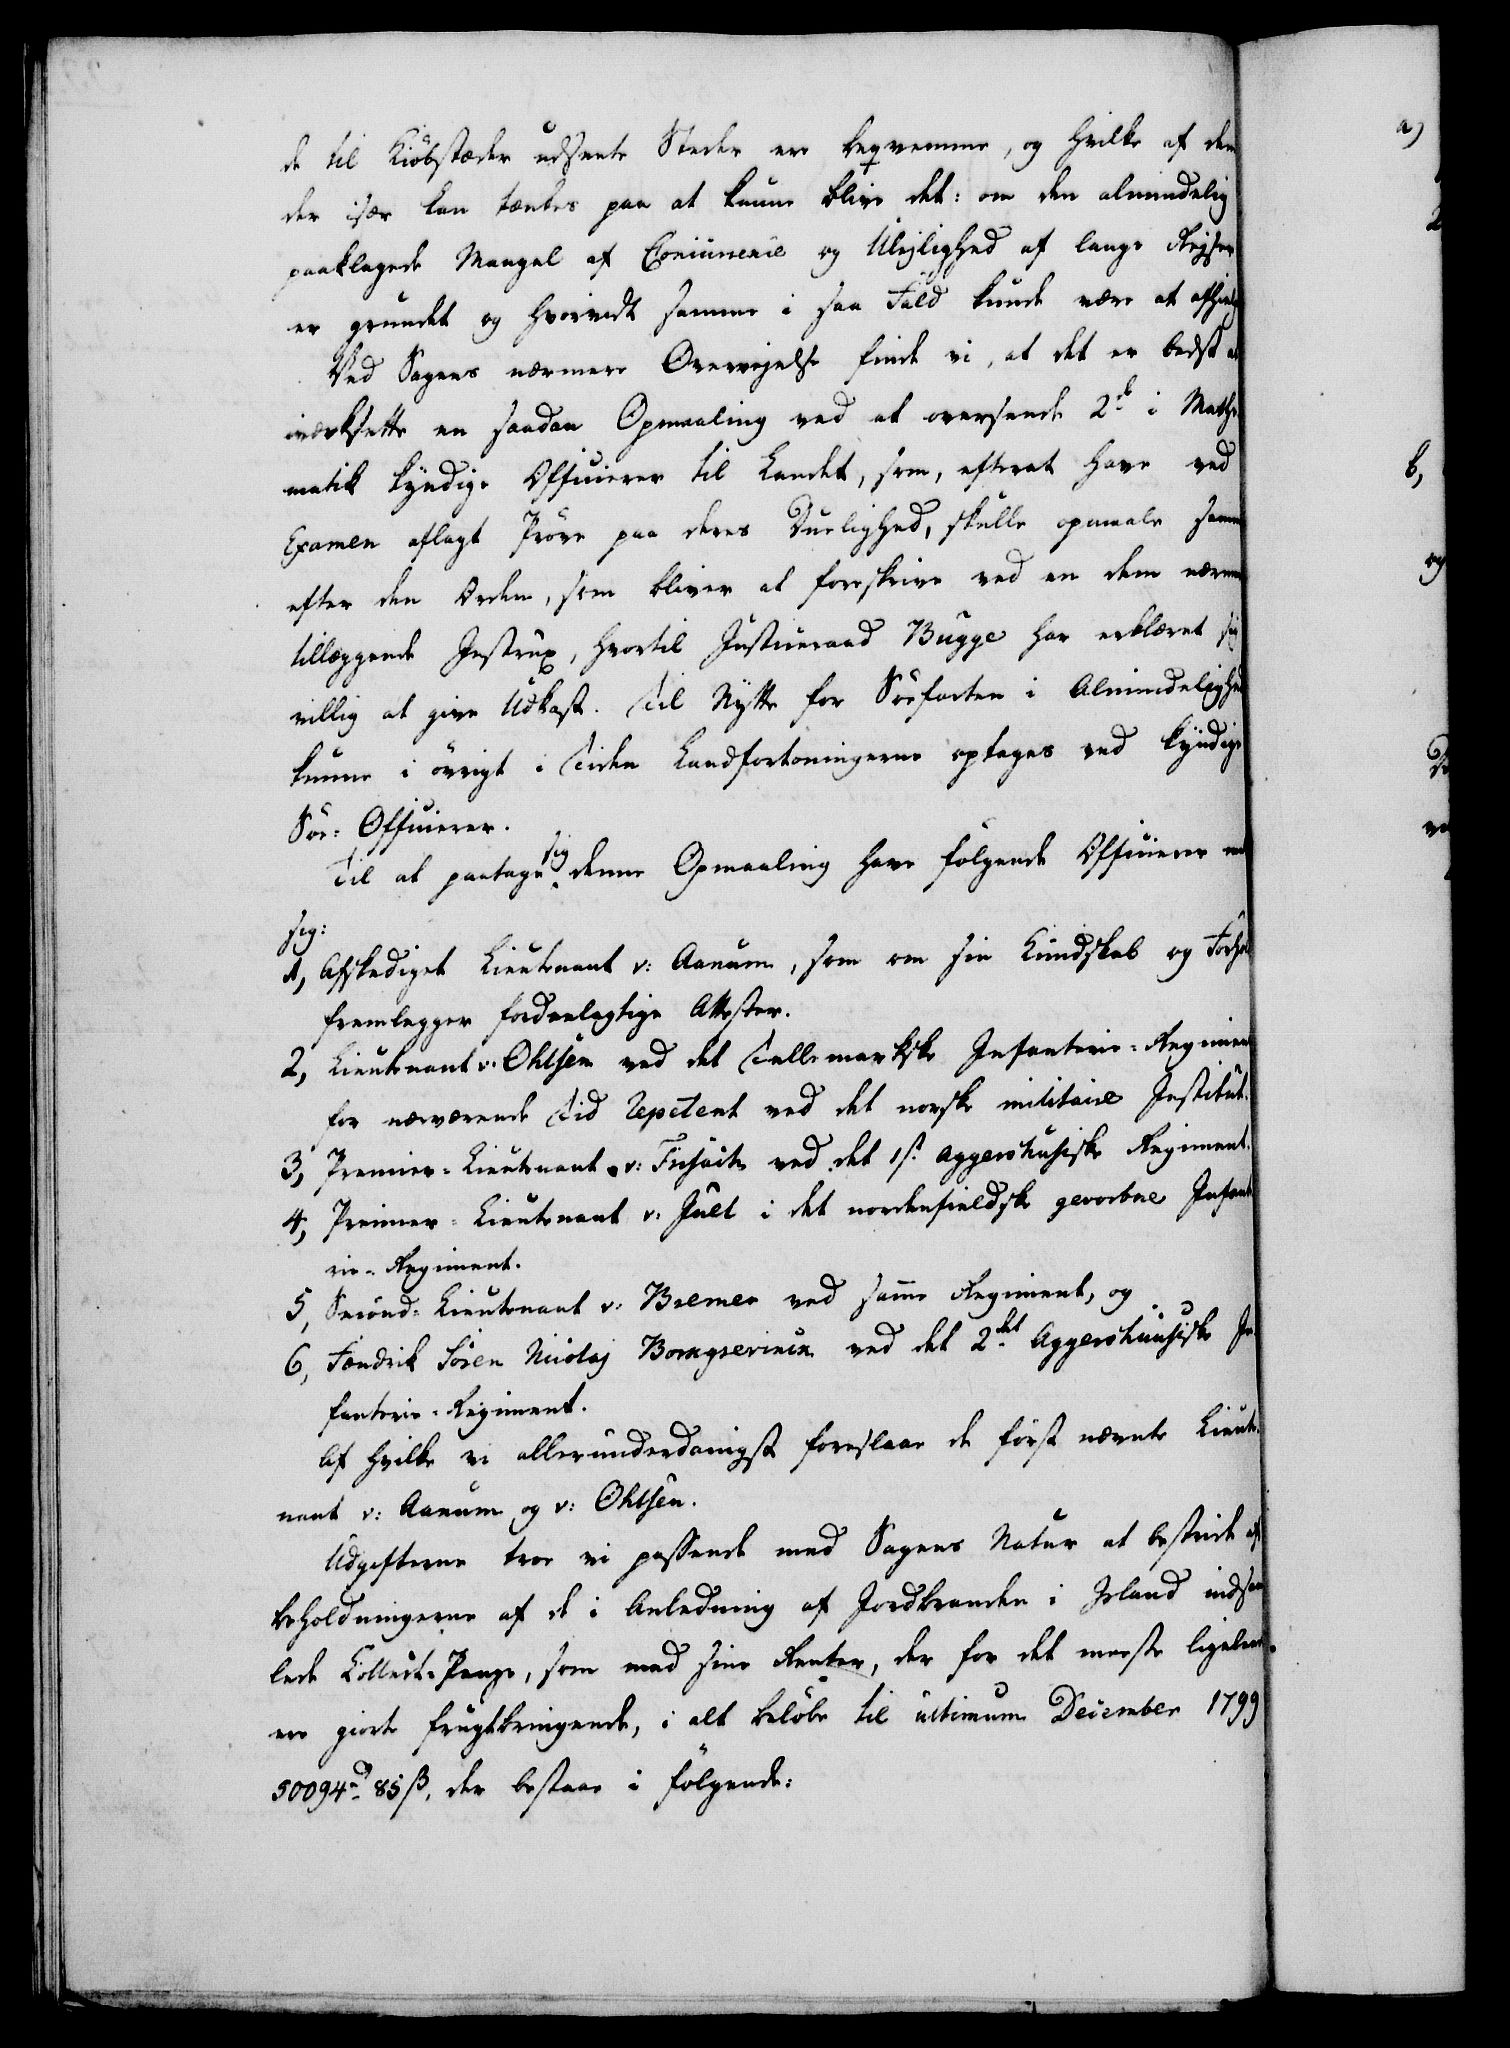 de til Kiöbstæder udseete Steder ere beqvemme, og hvilke af dem
der især kan tænkes paa at kunne blive det: om den almindelig
paaklagede Mangel af Communicat og Ulejlighed af lange Rejser
er grundet og hvorvidt samme i saa Fald kunde være at afhielpe
Ved Sagens nærmere Overvejelse finde vi, at det er bedst at
iværksette en saadan Opmaaling ved at oversende 2de i Mathe
matik kyndige Officierer til Landet, som, efterat have ved
Examen aflagt Pröve paa deres Duelighed, skulle opmaale samme
efter den Orden, som bliver at foreskrive ved en dem nærmere
tillæggende Instrux, hvortil Justiceraad Bugge har erklæret sig
villig at give Udkast. Til Nytte for Söefarten i Almindelighed
kunne i övrigt i Tiden Landfortoningerne optages ved kyndige
Söe-Officierer.
Til at paatage sig denne Opmaaling have fölgende Officierer
sig:
1, Afskediget Lieutenant v: Aanum, som om sin Kundskab og Forhold
fremlegger fordeelagtige Attester.
2, Lieutenant v: Ohlsen ved det Tellemarkske Infanterie-Regiment
for nærværende Tid Repetent ved det norske militaire Institut.
3, Premier-Lieutenant v: ved det 1st Aggershusiske Regiment.
4, Premier-Lieutenant v: Juell i det nordenfieldske gevorbne Infante
rie-Regiment.
5, Second-Lieutenant v: Bremer ved samme Regiment, og
6, Fændrik Sören Nicolaj ved det 2det Aggershuusiske In
fanterie-Regiment.
Af hvilke vi allerunderdanigst foreslaae de först nævnte Lieute
nant v: Aanum og v: Ohlsen.
Udgifterne troe vi passende med Sagens Natur at bestride af
beholdningerne af de i Anledning af Jordbranden i Island indsam
lede Collect-Penge, som med sine Renter, der for det meeste ligeledes
ere giorte frugtbringende, i alt belöbe til ultimum December 1799
50094 rd 85 ß, der bestaae i fölgende:
a)
2
b,
og